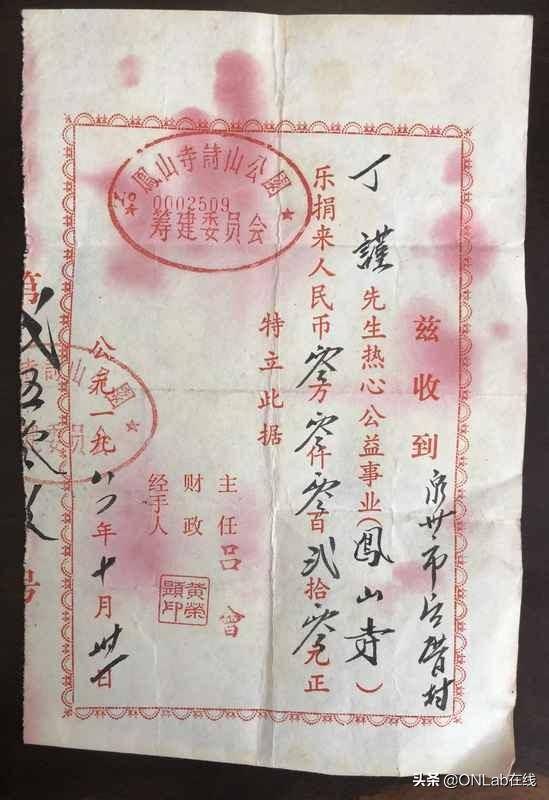 兹收到 泉州市后村
丁謹先生热心公益事业(鳳山寺)
乐捐来人民币零万零仟零百弍拾零元正
特立此据
鳳山寺詩山公園
0002509
筹建委员会
主任吕曾
财政
经手人
黃榮
印
公元一九八年十月卅日
第弍五零九号
寺詩山公園
委员
头条 @ONLab在线